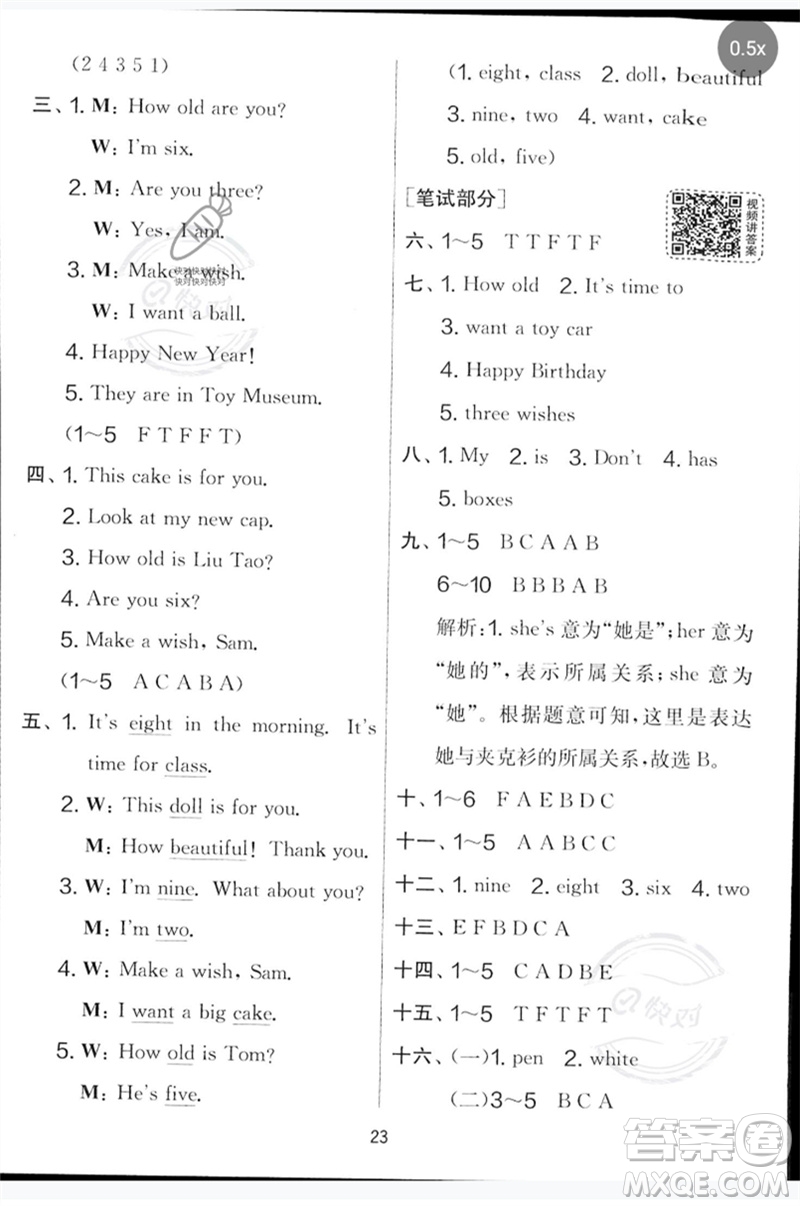 (2 4 3 5 1)
三、1. M: How old are you?
W: I'm six.
2. M: Are you three?
W: Yes, I am.
3. M: Make a wish.
W: I want a ball.
4. Happy New Year!
5. They are in Toy Museum.
(1～5 F T F F T)
四、1. This cake is for you.
2. Look at my new cap.
3. How old is Liu Tao?
4. Are you six?
5. Make a wish, Sam.
(1～5 A C A B A)
五、1. It's eight in the morning. It's
time for class.
2. W: This doll is for you.
M: How beautiful! Thank you.
3. W: I'm nine. What about you?
M: I'm two.
4. W: Make a wish, Sam.
M: I want a big cake.
5. W: How old is Tom?
M: He's five.
快对快对快对快对
快对快对快对快对
快对
0.5x
(1. eight, class 2. doll, beautiful
3. nine, two 4. want, cake
5. old, five)
[笔试部分]
视频讲答案
六、1～5 T T F T F
七、1. How old 2. It's time to
3. want a toy car
4. Happy Birthday
5. three wishes
八、1. My 2. is 3. Don't 4. has
5. boxes
九、1～5 B C A A B
6～10 B B B A B
解析:1. she's 意为“她是”;her 意为
“她的”,表示所属关系;she 意为
“她”。根据题意可知,这里是表达
她与夹克衫的所属关系,故选 B。
十、1～6 F A E B D C
十一、1～5 A A B C C
十二、1. nine 2. eight 3. six 4. two
十三、E F B D C A
十四、1～5 C A D B E
十五、1～5 T F T F T
十六、(一)1. pen 2. white
(二)3～5 B C A
快对
23
答案圈
MXQE.COM